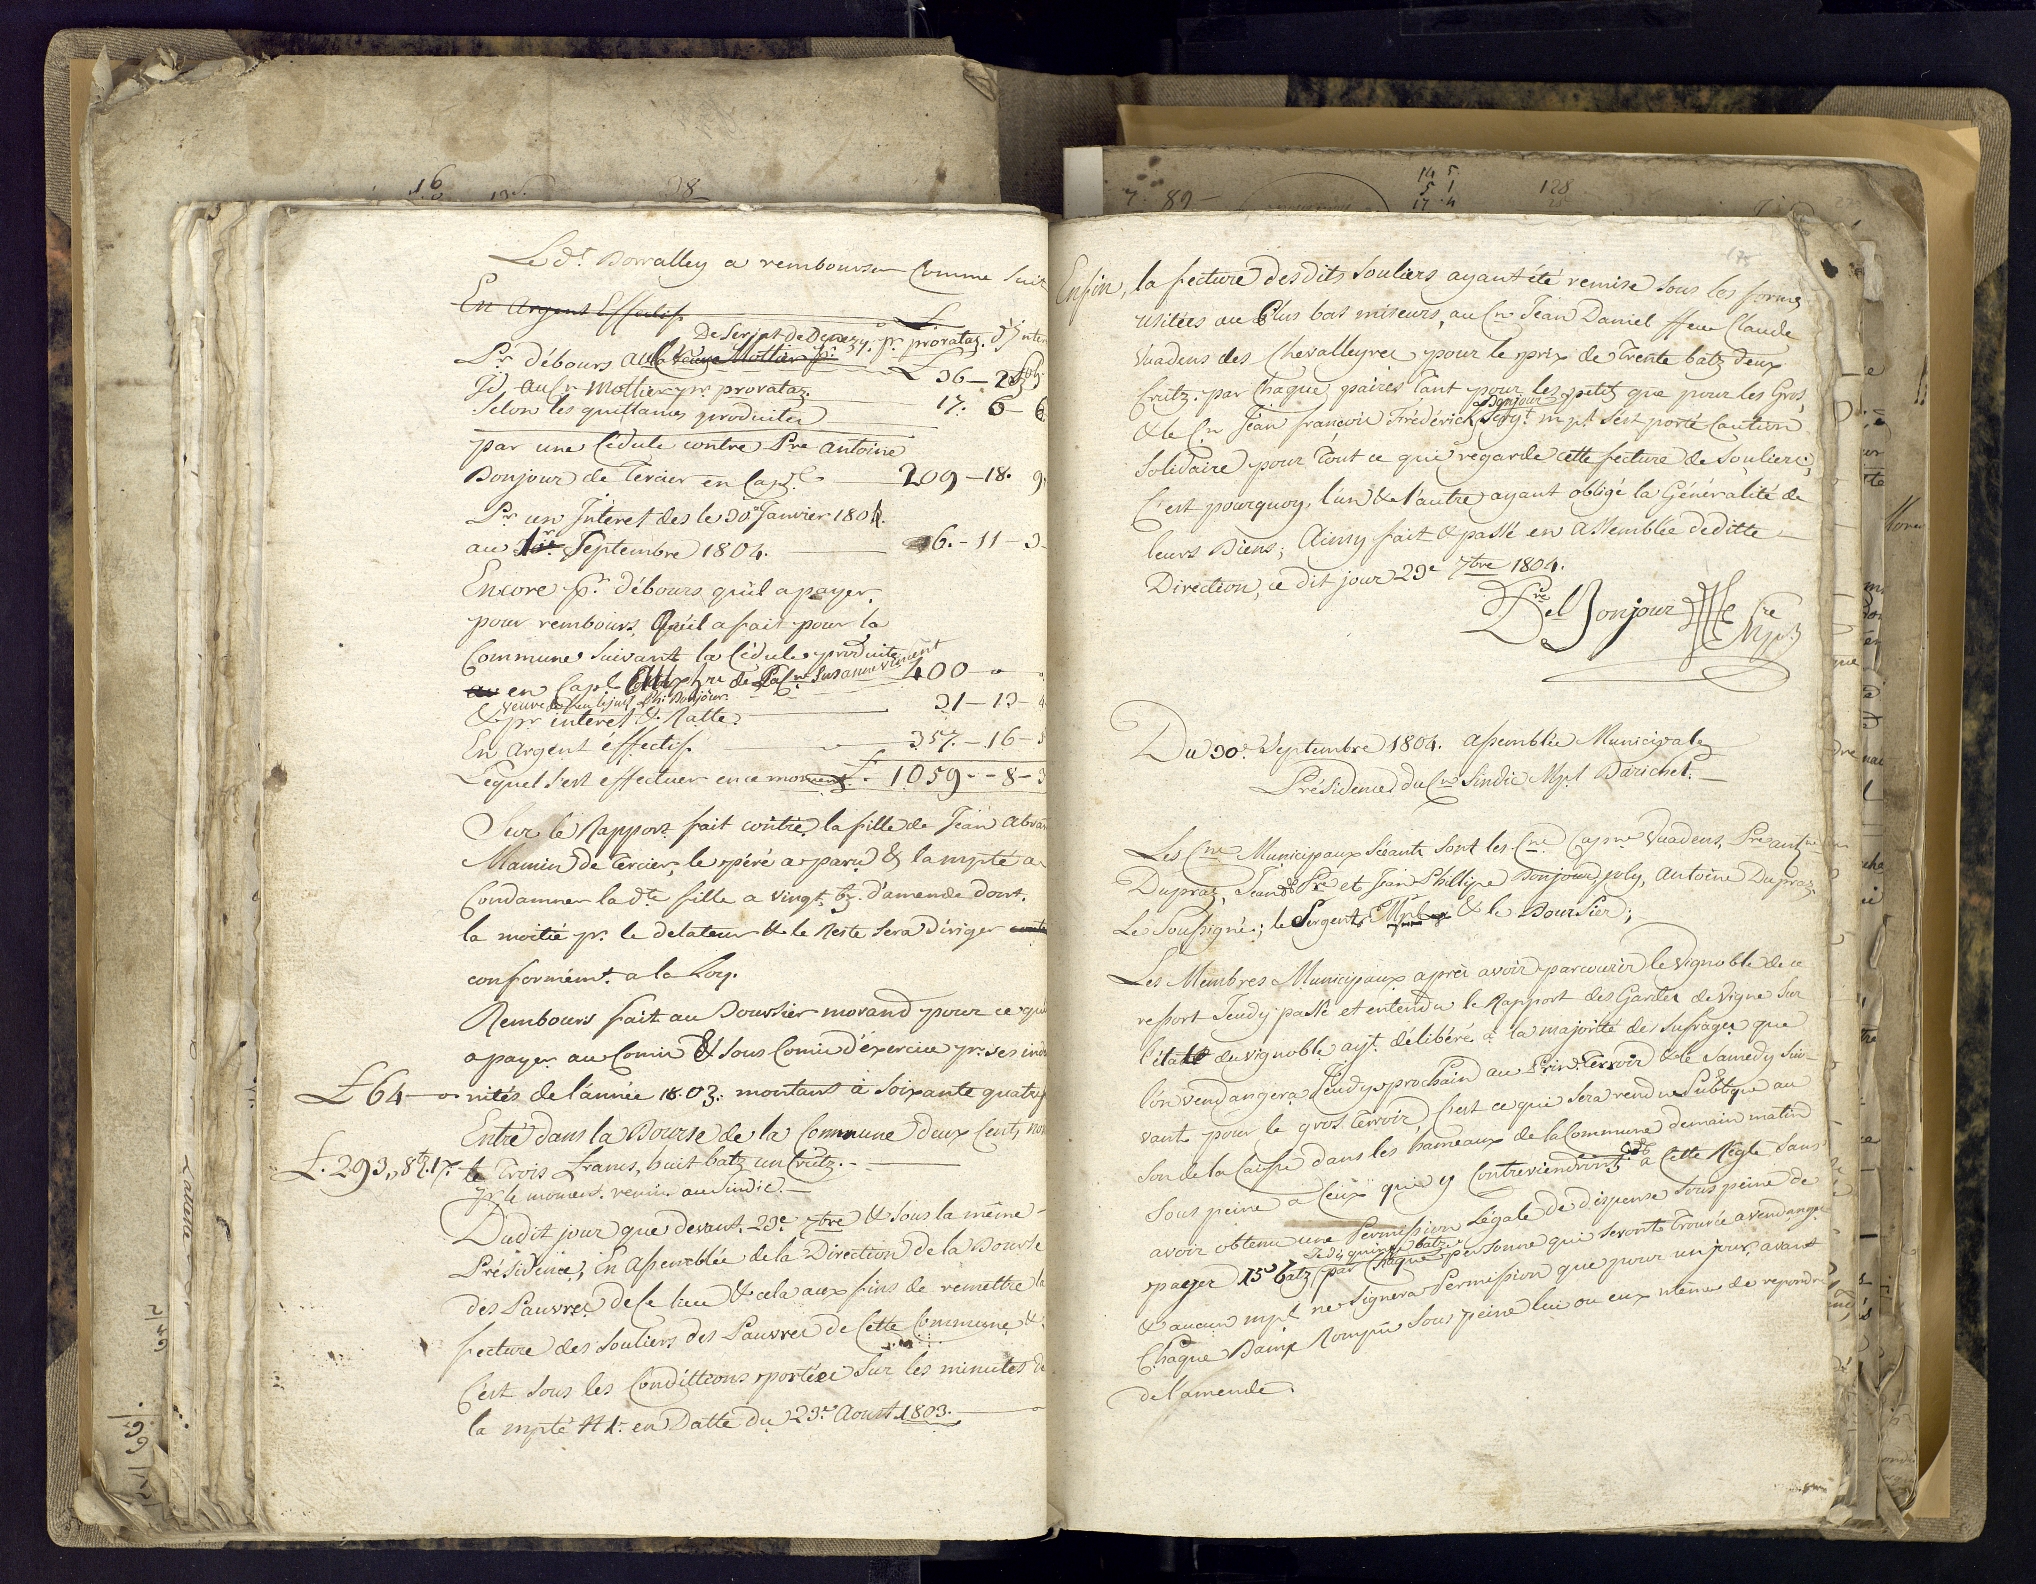 Le dt. Dorralley a rembourser Comme Suit
En Argent Effectif
De Script. de Denezy. pr. proratas. d'Inter
Pr. débours au la veuve Mottier pr. L. 36 – 2
Id. au Cn. Mottier pr. proratas. 17. 6 – 6
Selon les quittances produites
par une Cédule contre Pre. Antoine
Bonjour de Tercier en Capl. 209 – 18. 9.
Pr. un Intéret des le 30e Janvier 1804.
au 1er. Septembre 1804. 6. – 11 – 3
Encore pr. débours qu'il a payer.
pour rembours. Qu'il a fait pour la
Commune suivant la Cédule produite
en Capl. de la Cne. Susanne Vincent 400 –
veuve de feu le just. Ph. Bonjour.
& pr. intéret & Ratte. 31 – 13 – 4
En Argent éffectif. 357. – 16 –
Lequel s'est effectuer en ce moment. L. 1059 – 8 – 3
Sur le Rapport fait contre la fille de Jean Abra
Mamin de Tercier, le péré a paru & la mpté a
Condamner la dte. fille a vingt bz. d'amende dont.
la moitié pr. le delateur & le Reste sera Diriger
conformémt. a la Loy.
Rembours fait au Boursier morand pour ce qu'il
a payer au Comis & Sous Comis d'éxercice pr. ses
L. 64 – nités de l'année 1803. montant à soixante quatre
Entré dans la Bourse de la Commune deux Cents no
L. 293,, 8 bz. 1 7. te Trois Francs, huit batz un Crutz. –
pr. le moment. remis au sindic. –
Dudit jour que devant. 29e. 7bre & sous la même
Présidence; En Assemblée de la Direction de la Bourse
des Pauvres de Ce lieu & cela aux fins de remettre la
fecture des souliers des Pauvres de Cette Commune, &
C'est sous les Condittions portées sur les minutes de
la mpté N 1. en Datte du 23e. Aoust 1803. –
Enfin, la fecture des dits souliers ayant été remise sous les formes
usitées au Plus bas miseurs, au Cn. Jean Daniel ffeu Claude
Vuadens des Chevalleyres pour le prix de Trente batz deux
Crutz. par Chaque paires tant pour les petits que pour les Gros,
Bonjour
& le Cn. Jean françois Frédérich Sergt. mpl. s'est porté Caution
solidaire pour Tout ce qui regarde cette fecture de souliers,
C'est pourquoy l'un & l'autre ayant obligé la Généralité de
leurs Biens; Ainsy fait & passé en Assemblée deditte
Direction, ce dit jour 29e 7bre 1804.
Del Bonjour Sre
Mplé
Du 30e Septembre 1804. Assemblée Municipale
Présidence du Cn. Sindic Mpl. Barichet. –
Les Cns. Municipaux Séants sont les Cns. Capne. Vuadens, Pre. Antne
Dupraz, Jean Pre et Jean Phillipe Bonjour joly, Antoine Dupraz,
Le Soussigné; le Sergent Mpl. & le Boursier;
Les Membres Municipaux après avoir parcourir le Vignoble de ce
ressort Jeudy passé et entendu le Rapport des Gardes de Vigne sur
l'état du vignoble ayt. délibéré à la majorité de sufrages que
l'on vendangera Jeudy prochain au Prin Terroir & le Samedy suiv-
vant pour le gros Terroir, C'est ce qui sera rendu Publique au
son de la Caisse dans les hameaux de la Commune demain matin
sous peine à Ceux qui y Contreviendront à Cette Règle sans
avoir obtenu une Permission Légale de dispense sous peine de
Je dis quinze batz.
payer 15 batz par Chaque personne qui seront Trouvée a vendanger
& aucun mpl. ne signera Permission que pour un jour, avant
Chaque Bamp Rompu sous peine lui ou eux même de repondre
de l'amende.